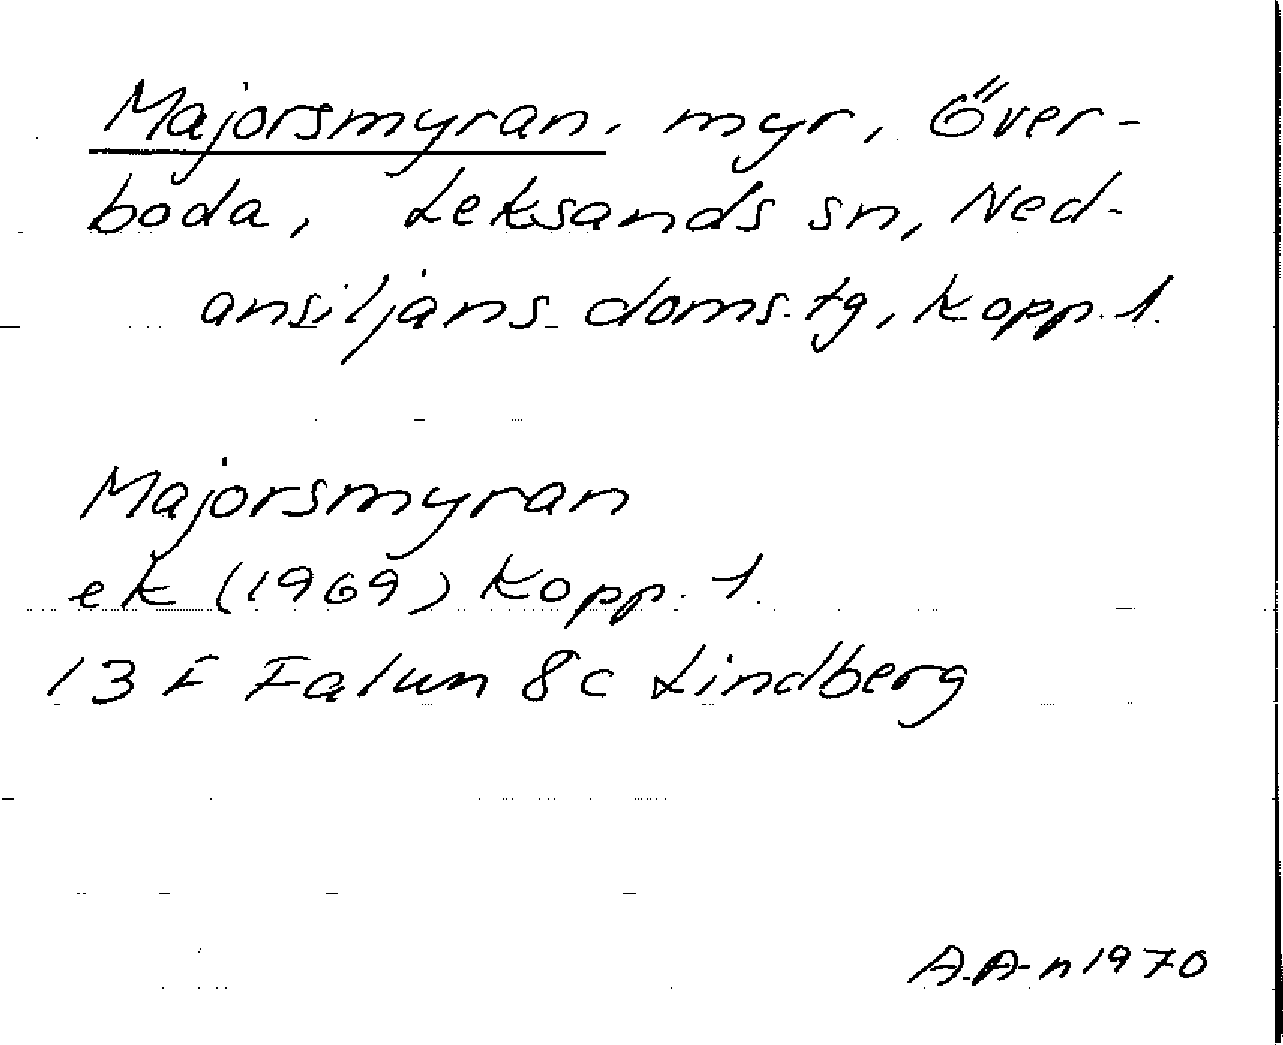 Majorsmyran, myr, Över-
boda, Leksands sn, Ned-
ansiljans doms.tg, Kopp. l.
Majorsmyran
ek (1969) Kopp. l.
13 F Falun 8c Lindberg
A.A-n 1970